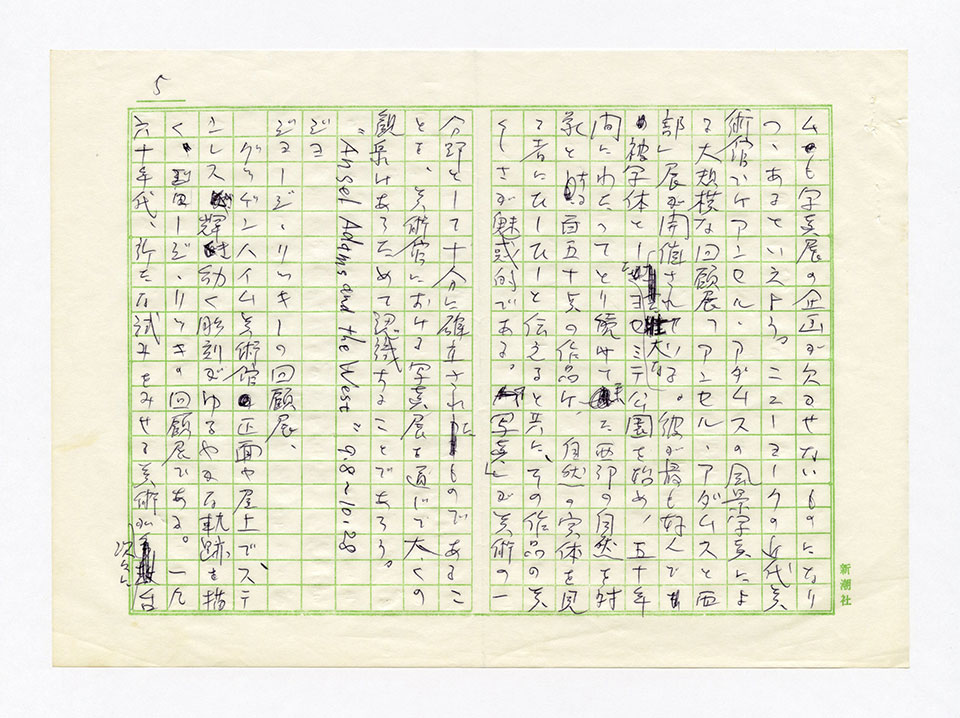 5
ムでも写真展の企画が欠かせないものになり
つゝあるといえよう。ニューヨークの近代美
術館でアンセル・アダムスの風景写真によ
る大規模な回顧展「アンセル・アダムスと西
部」展が開催されている。彼が最も好んで
被写体としたヨセミテ公園を始め、五十年
間にわたってとり続けて来た西部の自然を対
象とする百五十点の作品は、自然の実体を見
る者にひしひしと伝えると共に、その作品の美
しさが魅惑的である。「写真」が美術の一
分野として十分に確立されたものであるこ
とを、美術館における写真展を通じて大くの
観衆はあらためて認識することであろう。
"Ansel Adams and the West" 9.8~10.28
ジョ
ジョージ・リッキーの回顧展、
グッゲンハイム美術館の正面や屋上で、ステ
ンレス輝き動く彫刻がゆるやかな軌跡を描
く。ジョージ・リッキの回顧展である。一九
六十年代、新たな試みをみせる美術が次々に台
新潮社